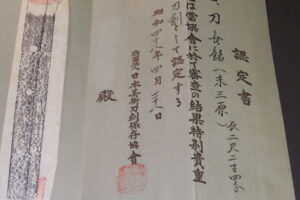 認定書
一、刀 無銘(末三原)長二尺二寸四分
は當協會に於て審査の結果特別貴重
刀剣として認定する
昭和四十八年四月二十八日
財團法人日本美術刀剣保存協會
殿